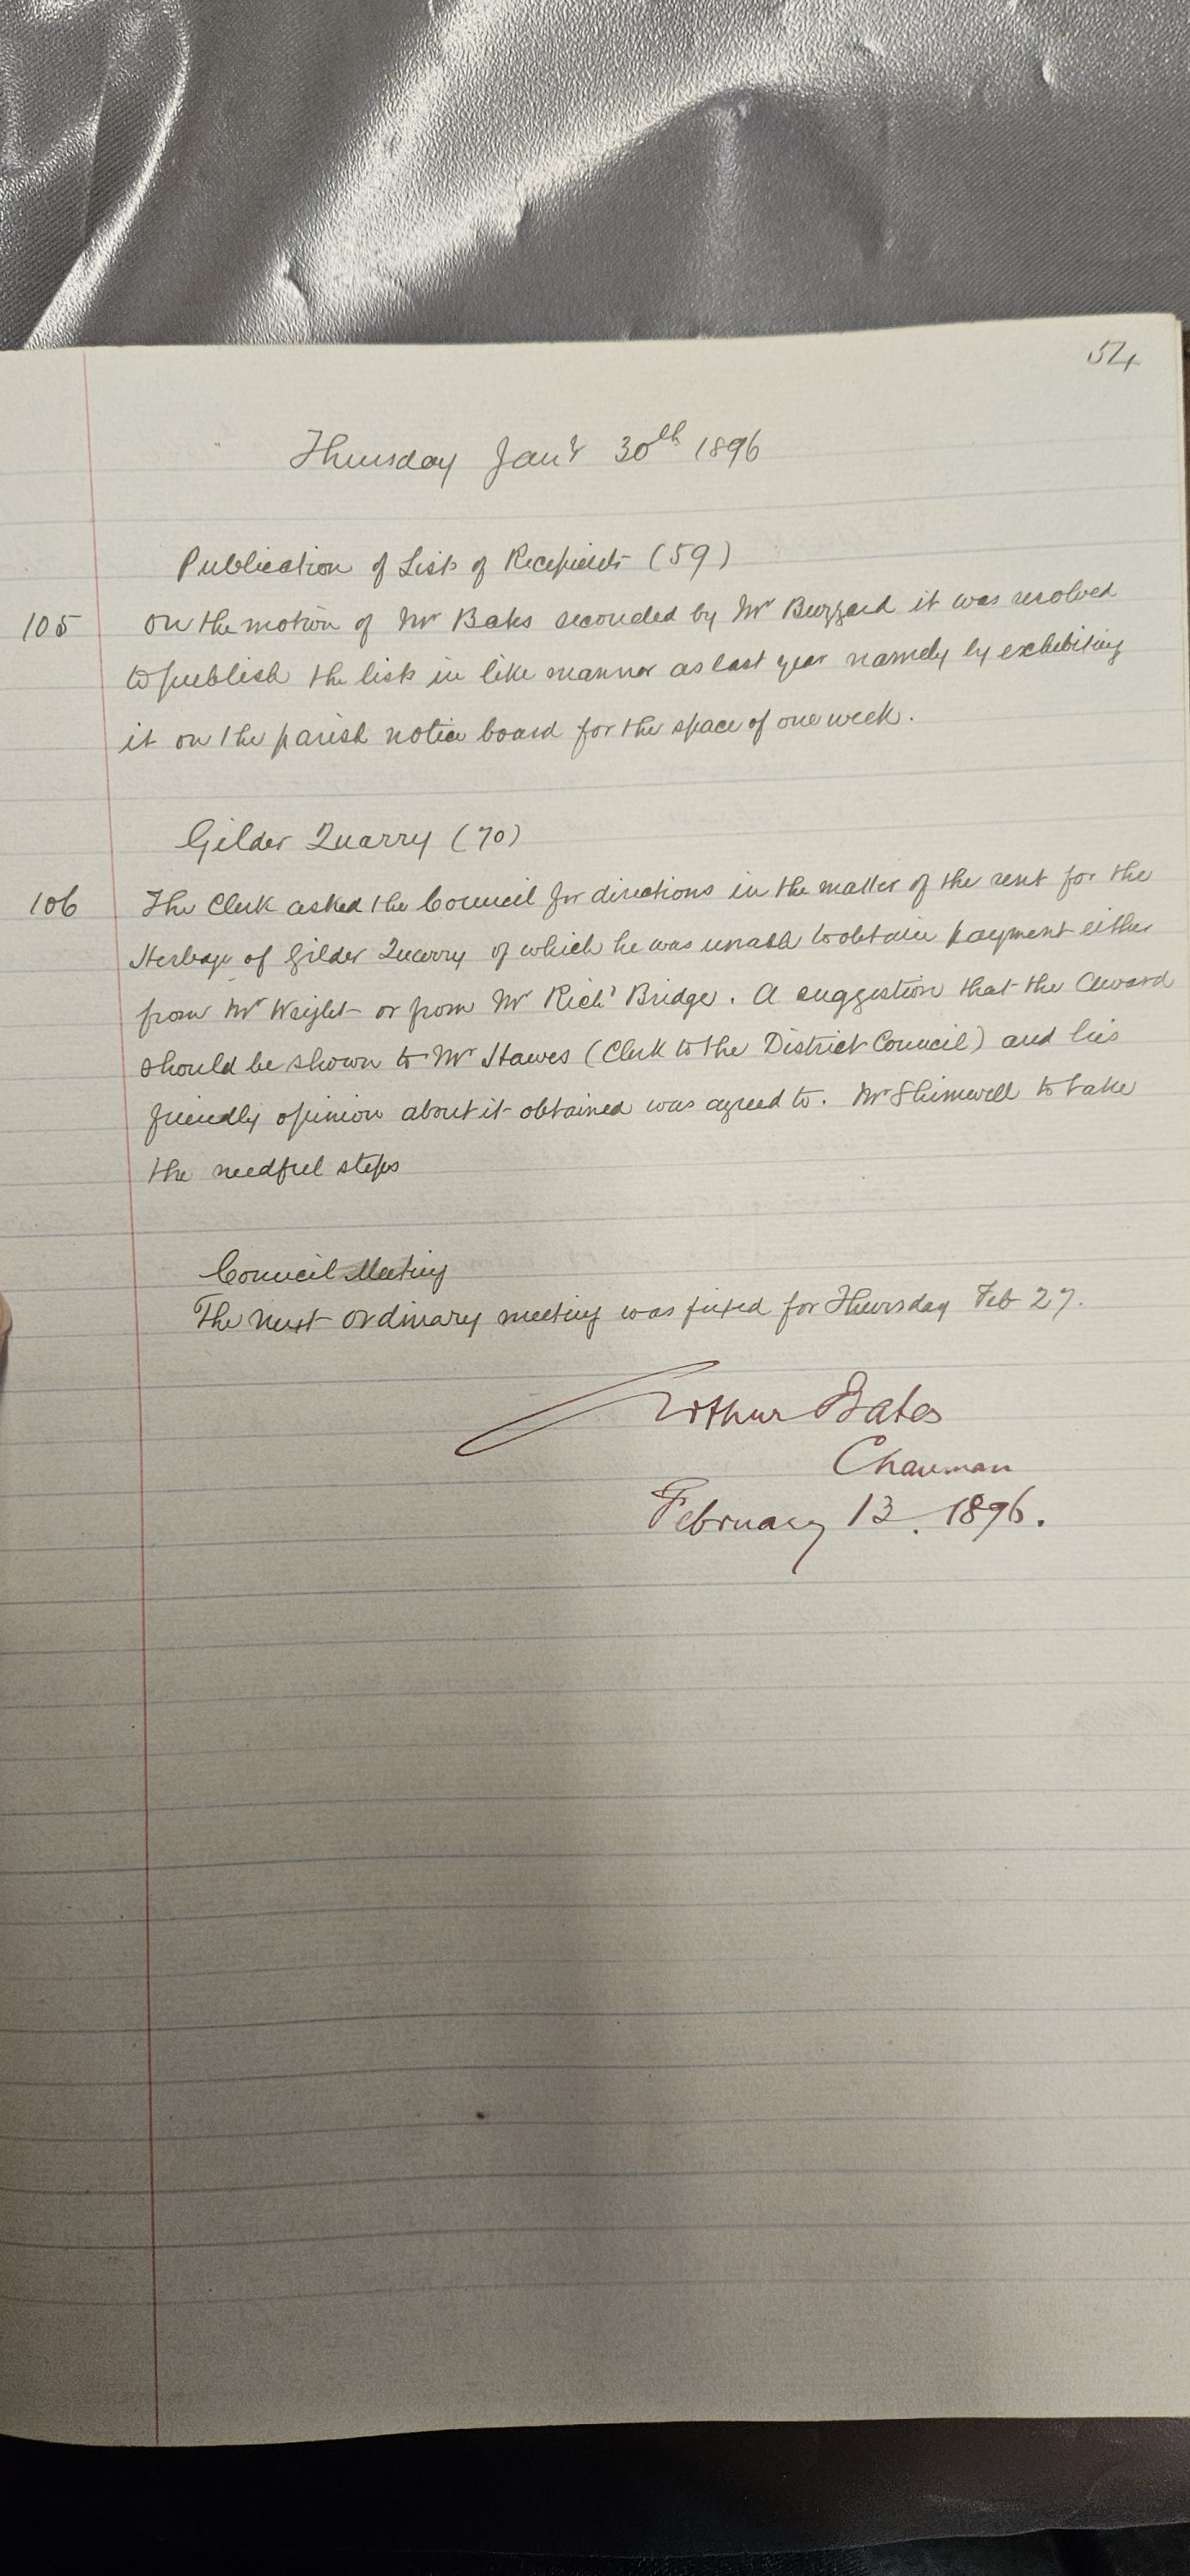 54
Thursday Jany 30th 1896
Publication of List of Recipients (59)
105 On the motion of Mr Bates seconded by Mr Buzzard it was resolved
to publish the list in like manner as last year namely by exhibiting
it on the parish notice board for the space of one week.
Gilder Quarry (70)
106 The Clerk asked the Council for directions in the matter of the rent for the
Herbage of Gilder Quarry of which he was unable to obtain payment either
from Mr Wright or from Mr Richd Bridge. A suggestion that the Award
should be shown to Mr Hawes (Clerk to the District Council) and his
friendly opinion about it obtained was agreed to. Mr Shimwell to take
the needful steps
Council Meeting
The next ordinary meeting was fixed for Thursday Feb 27.
Arthur Bates
Chairman
February 13. 1896.